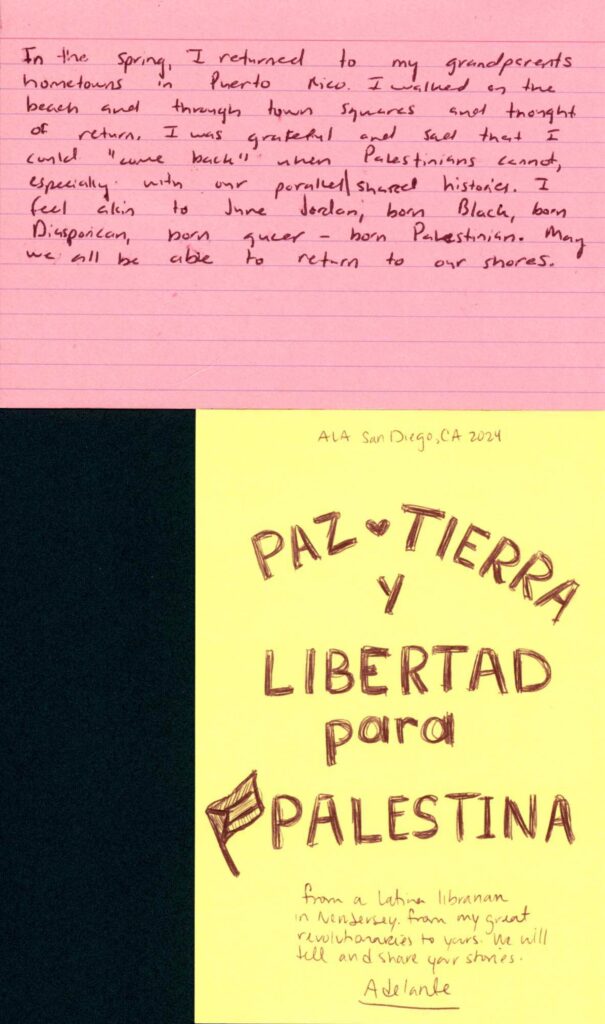 In the spring, I returned to my grandparents
hometowns in Puerto Rico. I walked on the
beach and through town squares and thought
of return. I was grateful and sad that I
could "come back" when Palestinians cannot,
especially with our parallel/shared histories. I
feel akin to June Jordan, born Black, born
Diasporican, born queer - born Palestinian. May
we all be able to return to our shores.
ALA San Diego, CA 2024
PAZ ♥ TIERRA
y
LIBERTAD
para
PALESTINA
from a Latina librarian
in New Jersey. From my great
revolutionaries to yours. We will
tell and share your stories.
Adelante